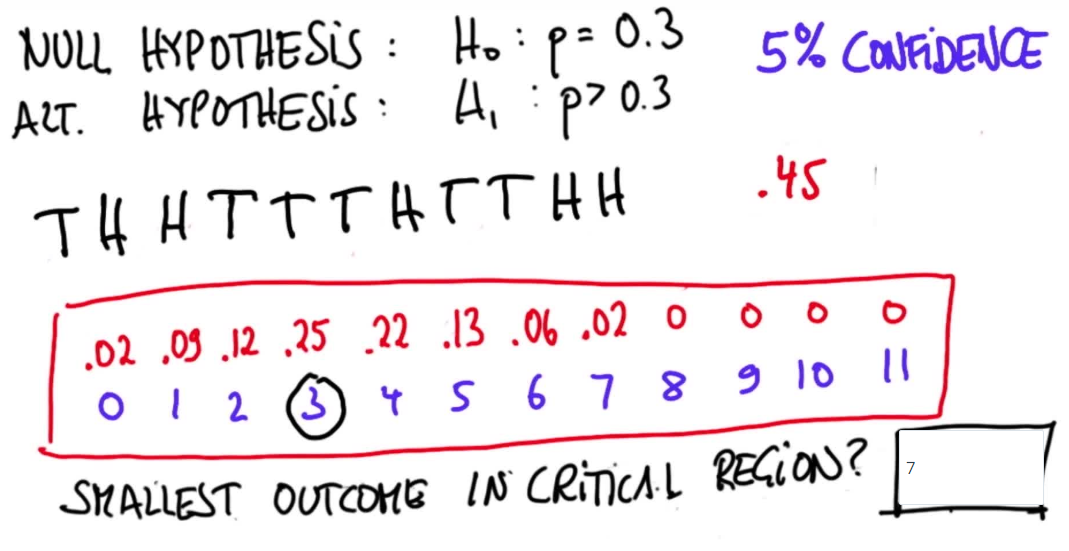 NULL HYPOTHESIS : H₀ : p = 0.3
5% CONFIDENCE
ALT. HYPOTHESIS : H₁ : p> 0.3
T H H T T T H T T H H
.45
.02 .09 .12 .25 .22 .13 .06 .02 0 0 0 0
0 1 2 3 4 5 6 7 8 9 10 11
SMALLEST OUTCOME IN CRITICAL REGION? 7